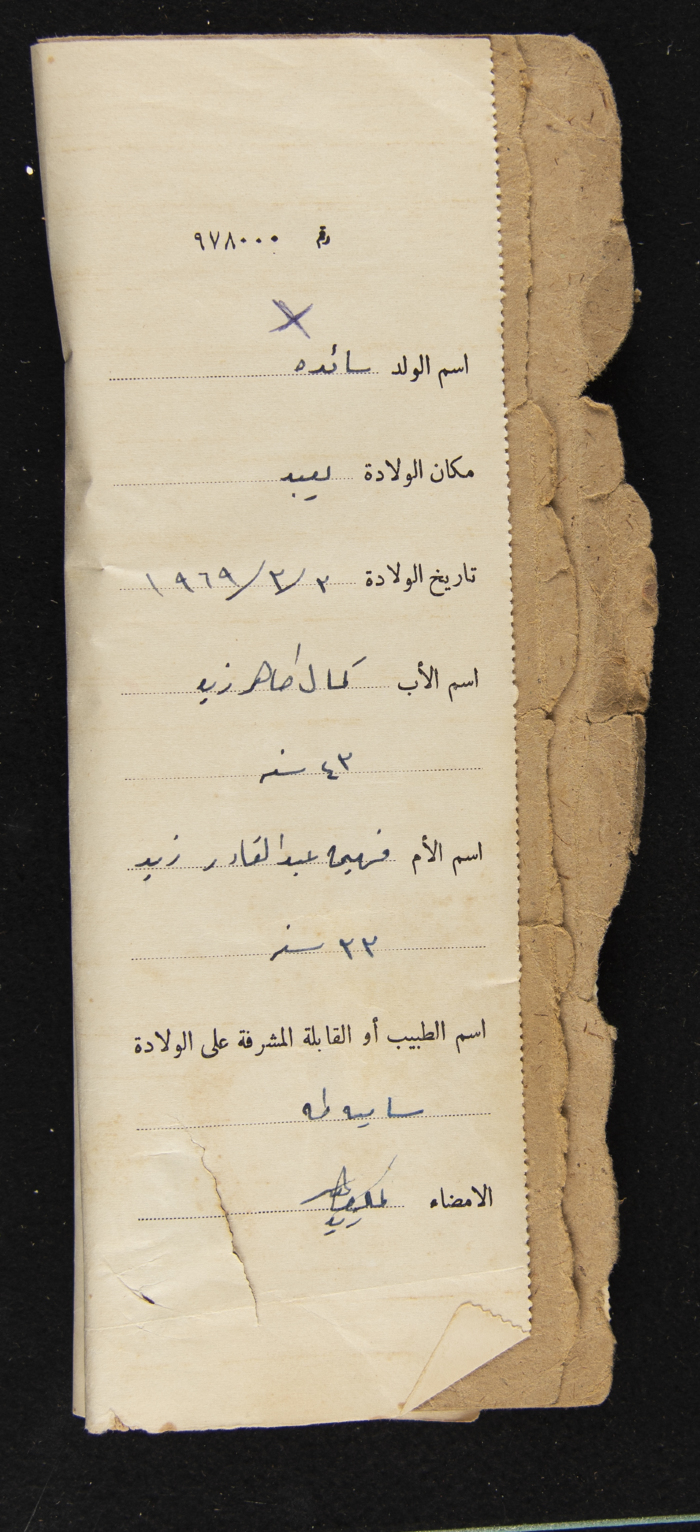 رقم ٩٧٨٠٠٠
اسم الولد سائده
مكان الولادة يعبد
تاريخ الولادة ٢/٣/١٩٦٩
اسم الأب كمال طاهر زيد
٤٣ سنه
اسم الأم فهيمه عبد القادر زيد
٣٣ سنه
اسم الطبيب أو القابلة المشرفة على الولادة
ساميه طه
الامضاء